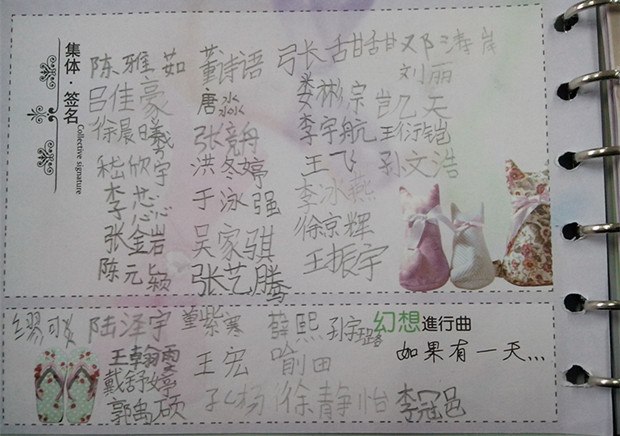 集体·签名
Collective signature
陈雅茹 董诗语 弓长甜甜 邓涛岸
刘丽
吕佳豪 唐 娄彬淙 凯凡天
徐晨曦 张竞舟 李宇航 王衍铠
嵇欣宇 洪冬婷 王飞 孙文浩
李 于泳强 李冰燕
张金岩 吴家骐 徐京辉
陈元颍 张艺腾 王振宇
陆泽宇 紫寒 薛熙 幻想進行曲
王翰雯 王宏 喻田 如果有一天...
戴舒婷
郭禹硕 孔杨 徐静怡 李冠邑